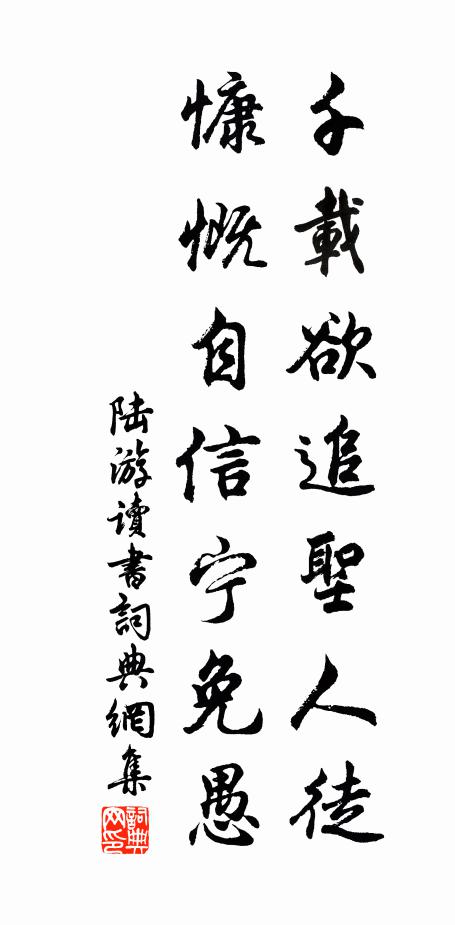 千載欲追聖人徒
慷慨自信宁免愚
陆游讀書詞典網集
詞典
网印